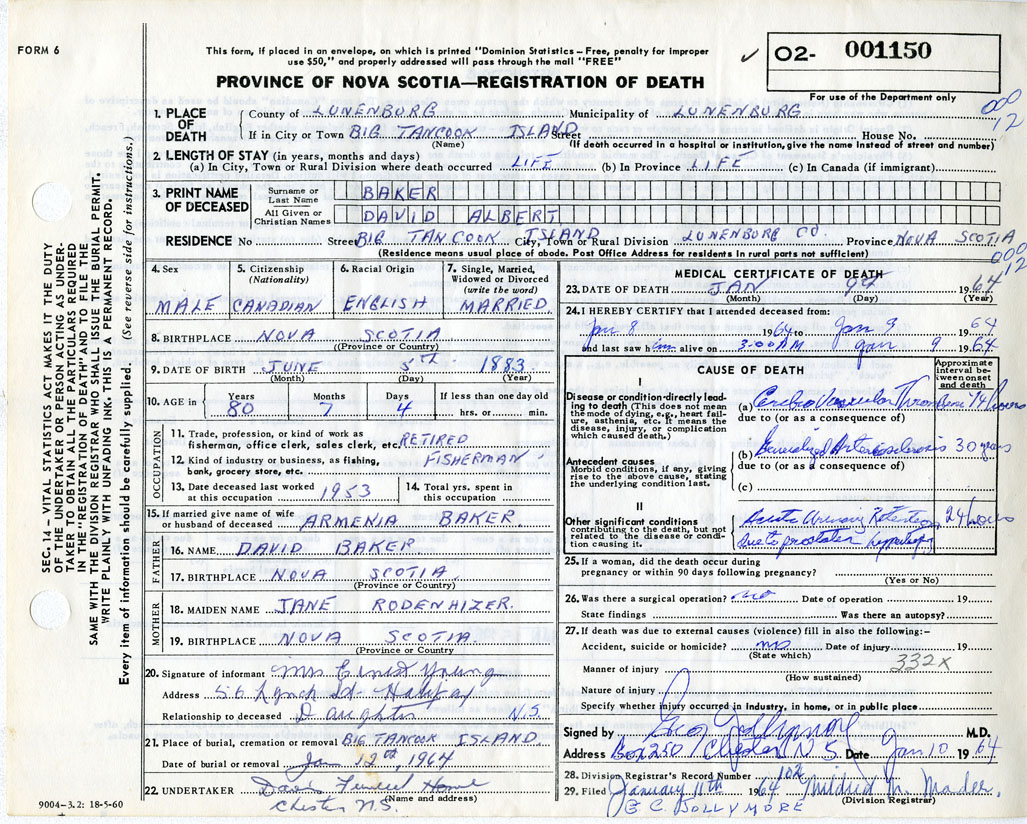 FORM 6
This form, if placed in an envelope, on which is printed "Dominion Statistics – Free, penalty for improper
use $50," and properly addressed will pass through the mail "FREE"
PROVINCE OF NOVA SCOTIA—REGISTRATION OF DEATH
✓ O2- 001150
For use of the Department only
000
12
SEC. 14 – VITAL STATISTICS ACT MAKES IT THE DUTY
OF THE UNDERTAKER OR PERSON ACTING AS UNDER-
TAKER TO OBTAIN ALL THE PARTICULARS REQUIRED
IN THE "REGISTRATION OF DEATH" AND TO FILE THE
SAME WITH THE DIVISION REGISTRAR WHO SHALL ISSUE THE BURIAL PERMIT.
WRITE PLAINLY WITH UNFADING INK. THIS IS A PERMANENT RECORD.
Every item of information should be carefully supplied. (See reverse side for instructions.)
1. PLACE OF DEATH
County of LUNENBURG Municipality of LUNENBURG
If in City or Town BIG TANCOOK ISLAND Street House No.
(Name) (If death occurred in a hospital or institution, give the name instead of street and number)
2. LENGTH OF STAY (in years, months and days)
(a) In City, Town or Rural Division where death occurred LIFE (b) In Province LIFE (c) In Canada (if immigrant)
3. PRINT NAME OF DECEASED
Surname or Last Name BAKER
All Given or Christian Names DAVID ALBERT
RESIDENCE No Street BIG TANCOOK ISLAND City, Town or Rural Division LUNENBURG CO. Province NOVA SCOTIA
(Residence means usual place of abode. Post Office Address for residents in rural parts not sufficient)
000
12
4. Sex
MALE
5. Citizenship
(Nationality)
CANADIAN
6. Racial Origin
ENGLISH
7. Single, Married,
Widowed or Divorced
(write the word)
MARRIED.
8. BIRTHPLACE NOVA SCOTIA
((Province or Country)
9. DATE OF BIRTH JUNE 5th 1883
(Month) (Day) (Year)
10. AGE in
Years Months Days If less than one day old
80 7 4 hrs. or min.
OCCUPATION
11. Trade, profession, or kind of work as
fisherman, office clerk, sales clerk, etc. RETIRED
12. Kind of industry or business, as fishing, FISHERMAN
bank, grocery store, etc.
13. Date deceased last worked
at this occupation 1953
14. Total yrs. spent in
this occupation
15. If married give name of wife
or husband of deceased ARMENIA BAKER.
FATHER
16. NAME DAVID BAKER
17. BIRTHPLACE NOVA SCOTIA.
(Province or Country)
MOTHER
18. MAIDEN NAME JANE RODENHIZER.
19. BIRTHPLACE NOVA SCOTIA
(Province or Country)
20. Signature of informant Mrs Ernest Young
Address 56 Lynch Halifax
Relationship to deceased Daughter N.S.
21. Place of burial, cremation or removal BIG TANCOOK ISLAND.
Date of burial or removal Jan 12th, 1964
22. UNDERTAKER Davis Funeral Home
(Name and address)
Chester N.S.
9004–3.2: 18-5-60
MEDICAL CERTIFICATE OF DEATH
23. DATE OF DEATH JAN 9th 1964
(Month) (Day) (Year)
24. I HEREBY CERTIFY that I attended deceased from:
Jan 8 1964 to Jan 9 1964
and last saw him alive on 3:00 AM Jan 9 1964
CAUSE OF DEATH
Approximate
interval be-
tween onset
and death
I
Disease or condition directly lead-
ing to death (This does not mean
the mode of dying, e.g., heart fail-
ure, asthenia, etc. It means the
disease, injury, or complication
which caused death.)
(a) Cerebro Vascular Thrombosis 14 hours
due to (or as a consequence of)
(b) Generalized Arteriosclerosis 30 years
due to (or as a consequence of)
(c)
Antecedent causes
Morbid conditions, if any, giving
rise to the above cause, stating
the underlying condition last.
II
Other significant conditions
contributing to the death, but not
related to the disease or condi-
tion causing it.
Acute Urinary Retention 24 hours
due to prostatic
25. If a woman, did the death occur during
pregnancy or within 90 days following pregnancy?
(Yes or No)
26. Was there a surgical operation? no Date of operation 19
State findings Was there an autopsy?
27. If death was due to external causes (violence) fill in also the following:–
Accident, suicide or homicide? no Date of injury 19
(State which)
332X
Manner of injury
(How sustained)
Nature of injury
Specify whether injury occurred in industry, in home, or in public place
Signed by M.D.
Address Box 250 / Chester N.S. Date Jan 10 1964
28. Division Registrar's Record Number 102
29. Filed January 11th 1964 Mildred M. Mader.
(Division Registrar)
JOLLYMORE